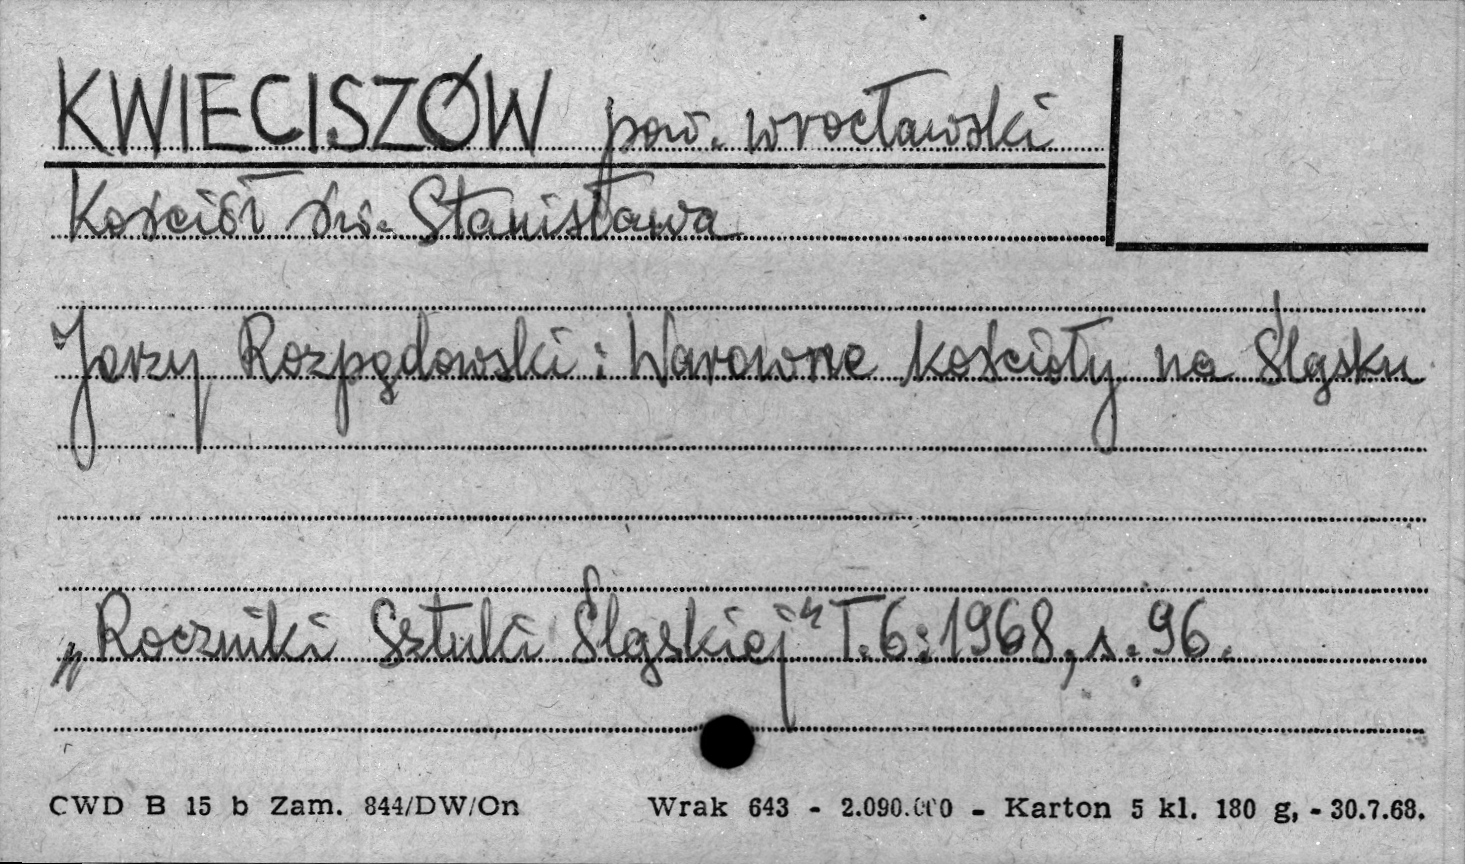 KWIECISZÓW pow. wrocławski
Kościół św. Stanisława
Jerzy Rozpędowski: Warowne kościoły na Śląsku
„Roczniki Sztuki Śląskiej" T.6:1968, s.96.
CWD B 15 b Zam. 844/DW/On Wrak 643 - 2.090.000 - Karton 5 kl. 180 g, - 30.7.68.